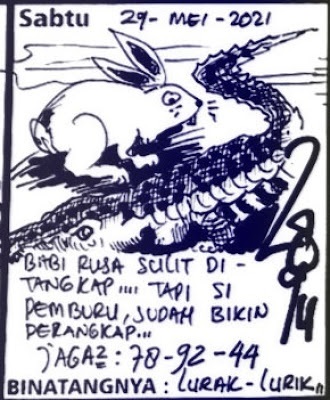 Sabtu 29- MEI - 2021
BABI RUSA SULIT DI -
TANGKAP .... TAPI SI
PEMBURU, SUDAH BIKIN
PERANGKAP...
JAGA2 : 78-92-44
BINATANGNYA : LURAK-LURIK,,